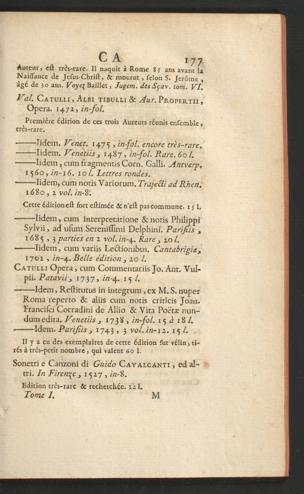 CA 177
Auteur, est très-rare. Il naquit à Rome 85 ans avant la
Naissance de Jesus-Christ, & mourut, selon S. Jerôme,
âgé de 30 ans. Voyez Baillet, Jugem. des Sçav. tom. VI.
Val. CATULLI, ALBI TIBULLI & Aur. PROPERTII,
Opera. 1472, in-fol.
Première édition de ces trois Auteurs réunis ensemble,
très-rare.
——Iidem. Venet. 1475, in-fol. encore très-rare.
——Iidem. Venetiis, 1487, in-fol. Rare. 60 l.
——Iidem, cum fragmentis Corn. Galli. Antverp.
1560, in-16. 10 l. Lettres rondes.
——Iidem, cum notis Variorum. Trajecti ad Rhen.
1680, 2 vol. in-8.
Cette édition est fort estimée & n'est pas commune. 15 l.
——Iidem, cum Interpretatione & notis Philippi
Sylvii, ad usum Serenissimi Delphini. Parisiis,
1685, 3 parties en 2 vol. in-4. Rare, 20 l.
——Iidem, cum variis Lectionibus. Cantabrigiæ,
1702, in-4. Belle édition, 20 l.
CATULLI Opera, cum Commentariis Jo. Ant. Vul-
pii. Patavii, 1737, in-4. 15 l.
——Idem, Restitutus in integrum, ex M.S. nuper
Roma reperto & aliis cum notis criticis Joan.
Francisci Corradini de Allio & Vita Poëtæ nun-
dum edita. Venetiis, 1738, in-fol. 15 à 18 l.
——Idem. Parisiis, 1743, 3 vol. in-12. 15 l.
Il y a eu des exemplaires de cette édition sur vélin, ti-
rés à très-petit nombre, qui valent 60 l.
Sonetti e Canzoni di Guido CAVALCANTI, ed al-
tri. In Firenze, 1527, in-8.
Edition très-rare & recherchée. 12 l.
Tome I. M